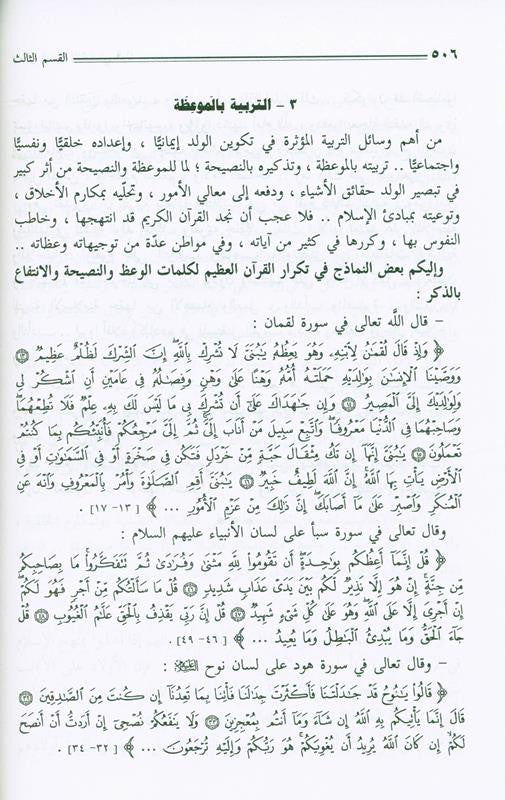 ٥٠٦ القسم الثالث
٣ - التربية بالموعظة
من أهم وسائل التربية المؤثرة في تكوين الولد إيمانيًّا ، وإعداده خلقيًّا ونفسيًّا
واجتماعيًّا .. تربيته بالموعظة ، وتذكيره بالنصيحة ؛ لما للموعظة والنصيحة من أثر كبير
في تبصير الولد حقائق الأشياء ، ودفعه إلى معالي الأمور ، وتحلّيه بمكارم الأخلاق ،
وتوعيته بمبادئ الإسلام .. فلا عجب أن نجد القرآن الكريم قد انتهجها ، وخاطب
النفوس بها ، وكررها في كثير من آياته ، وفي مواطن عدّة من توجيهاته وعظاته ..
وإليكم بعض النماذج في تكرار القرآن العظيم لكلمات الوعظ والنصيحة والانتفاع
بالذكر :
– قال اللَّه تعالى في سورة لقمان :
﴿ وَإِذْ قَالَ لُقْمَٰنُ لِٱبْنِهِۦ وَهُوَ يَعِظُهُۥ يَٰبُنَىَّ لَا تُشْرِكْ بِٱللَّهِ إِنَّ ٱلشِّرْكَ لَظُلْمٌ عَظِيمٌ ⑬
وَوَصَّيْنَا ٱلْإِنسَٰنَ بِوَٰلِدَيْهِ حَمَلَتْهُ أُمُّهُۥ وَهْنًا عَلَىٰ وَهْنٍ وَفِصَٰلُهُۥ فِى عَامَيْنِ أَنِ ٱشْكُرْ لِى
وَلِوَٰلِدَيْكَ إِلَىَّ ٱلْمَصِيرُ ⑭ وَإِن جَٰهَدَاكَ عَلَىٰٓ أَن تُشْرِكَ بِى مَا لَيْسَ لَكَ بِهِۦ عِلْمٌ فَلَا تُطِعْهُمَا
وَصَاحِبْهُمَا فِى ٱلدُّنْيَا مَعْرُوفًا وَٱتَّبِعْ سَبِيلَ مَنْ أَنَابَ إِلَىَّ ثُمَّ إِلَىَّ مَرْجِعُكُمْ فَأُنَبِّئُكُم بِمَا كُنتُمْ
تَعْمَلُونَ ⑮ يَٰبُنَىَّ إِنَّهَآ إِن تَكُ مِثْقَالَ حَبَّةٍ مِّنْ خَرْدَلٍ فَتَكُن فِى صَخْرَةٍ أَوْ فِى ٱلسَّمَٰوَٰتِ أَوْ فِى
ٱلْأَرْضِ يَأْتِ بِهَا ٱللَّهُ إِنَّ ٱللَّهَ لَطِيفٌ خَبِيرٌ ⑯ يَٰبُنَىَّ أَقِمِ ٱلصَّلَوٰةَ وَأْمُرْ بِٱلْمَعْرُوفِ وَٱنْهَ عَنِ
ٱلْمُنكَرِ وَٱصْبِرْ عَلَىٰ مَآ أَصَابَكَ إِنَّ ذَٰلِكَ مِنْ عَزْمِ ٱلْأُمُورِ ... ﴾ [ ١٣- ١٧ ] .
وقال تعالى في سورة سبأ على لسان الأنبياء عليهم السلام :
﴿ قُلْ إِنَّمَآ أَعِظُكُم بِوَٰحِدَةٍ أَن تَقُومُوا۟ لِلَّهِ مَثْنَىٰ وَفُرَٰدَىٰ ثُمَّ تَتَفَكَّرُوا۟ مَا بِصَاحِبِكُم
مِّن جِنَّةٍ إِنْ هُوَ إِلَّا نَذِيرٌ لَّكُم بَيْنَ يَدَىْ عَذَابٍ شَدِيدٍ ㊻ قُلْ مَا سَأَلْتُكُم مِّنْ أَجْرٍ فَهُوَ لَكُمْ
إِنْ أَجْرِىَ إِلَّا عَلَى ٱللَّهِ وَهُوَ عَلَىٰ كُلِّ شَىْءٍ شَهِيدٌ ㊼ قُلْ إِنَّ رَبِّى يَقْذِفُ بِٱلْحَقِّ عَلَّٰمُ ٱلْغُيُوبِ ㊽ قُلْ
جَآءَ ٱلْحَقُّ وَمَا يُبْدِئُ ٱلْبَٰطِلُ وَمَا يُعِيدُ ... ﴾ [ ٤٦- ٤٩ ] .
– وقال تعالى في سورة هود على لسان نوح عليه السلام :
﴿ قَالُوا۟ يَٰنُوحُ قَدْ جَٰدَلْتَنَا فَأَكْثَرْتَ جِدَٰلَنَا فَأْتِنَا بِمَا تَعِدُنَآ إِن كُنتَ مِنَ ٱلصَّٰدِقِينَ ㉜
قَالَ إِنَّمَا يَأْتِيكُم بِهِ ٱللَّهُ إِن شَآءَ وَمَآ أَنتُم بِمُعْجِزِينَ ㉝ وَلَا يَنفَعُكُمْ نُصْحِىٓ إِنْ أَرَدتُّ أَنْ أَنصَحَ
لَكُمْ إِن كَانَ ٱللَّهُ يُرِيدُ أَن يُغْوِيَكُمْ هُوَ رَبُّكُمْ وَإِلَيْهِ تُرْجَعُونَ ... ﴾ [ ٣٢- ٣٤ ] .